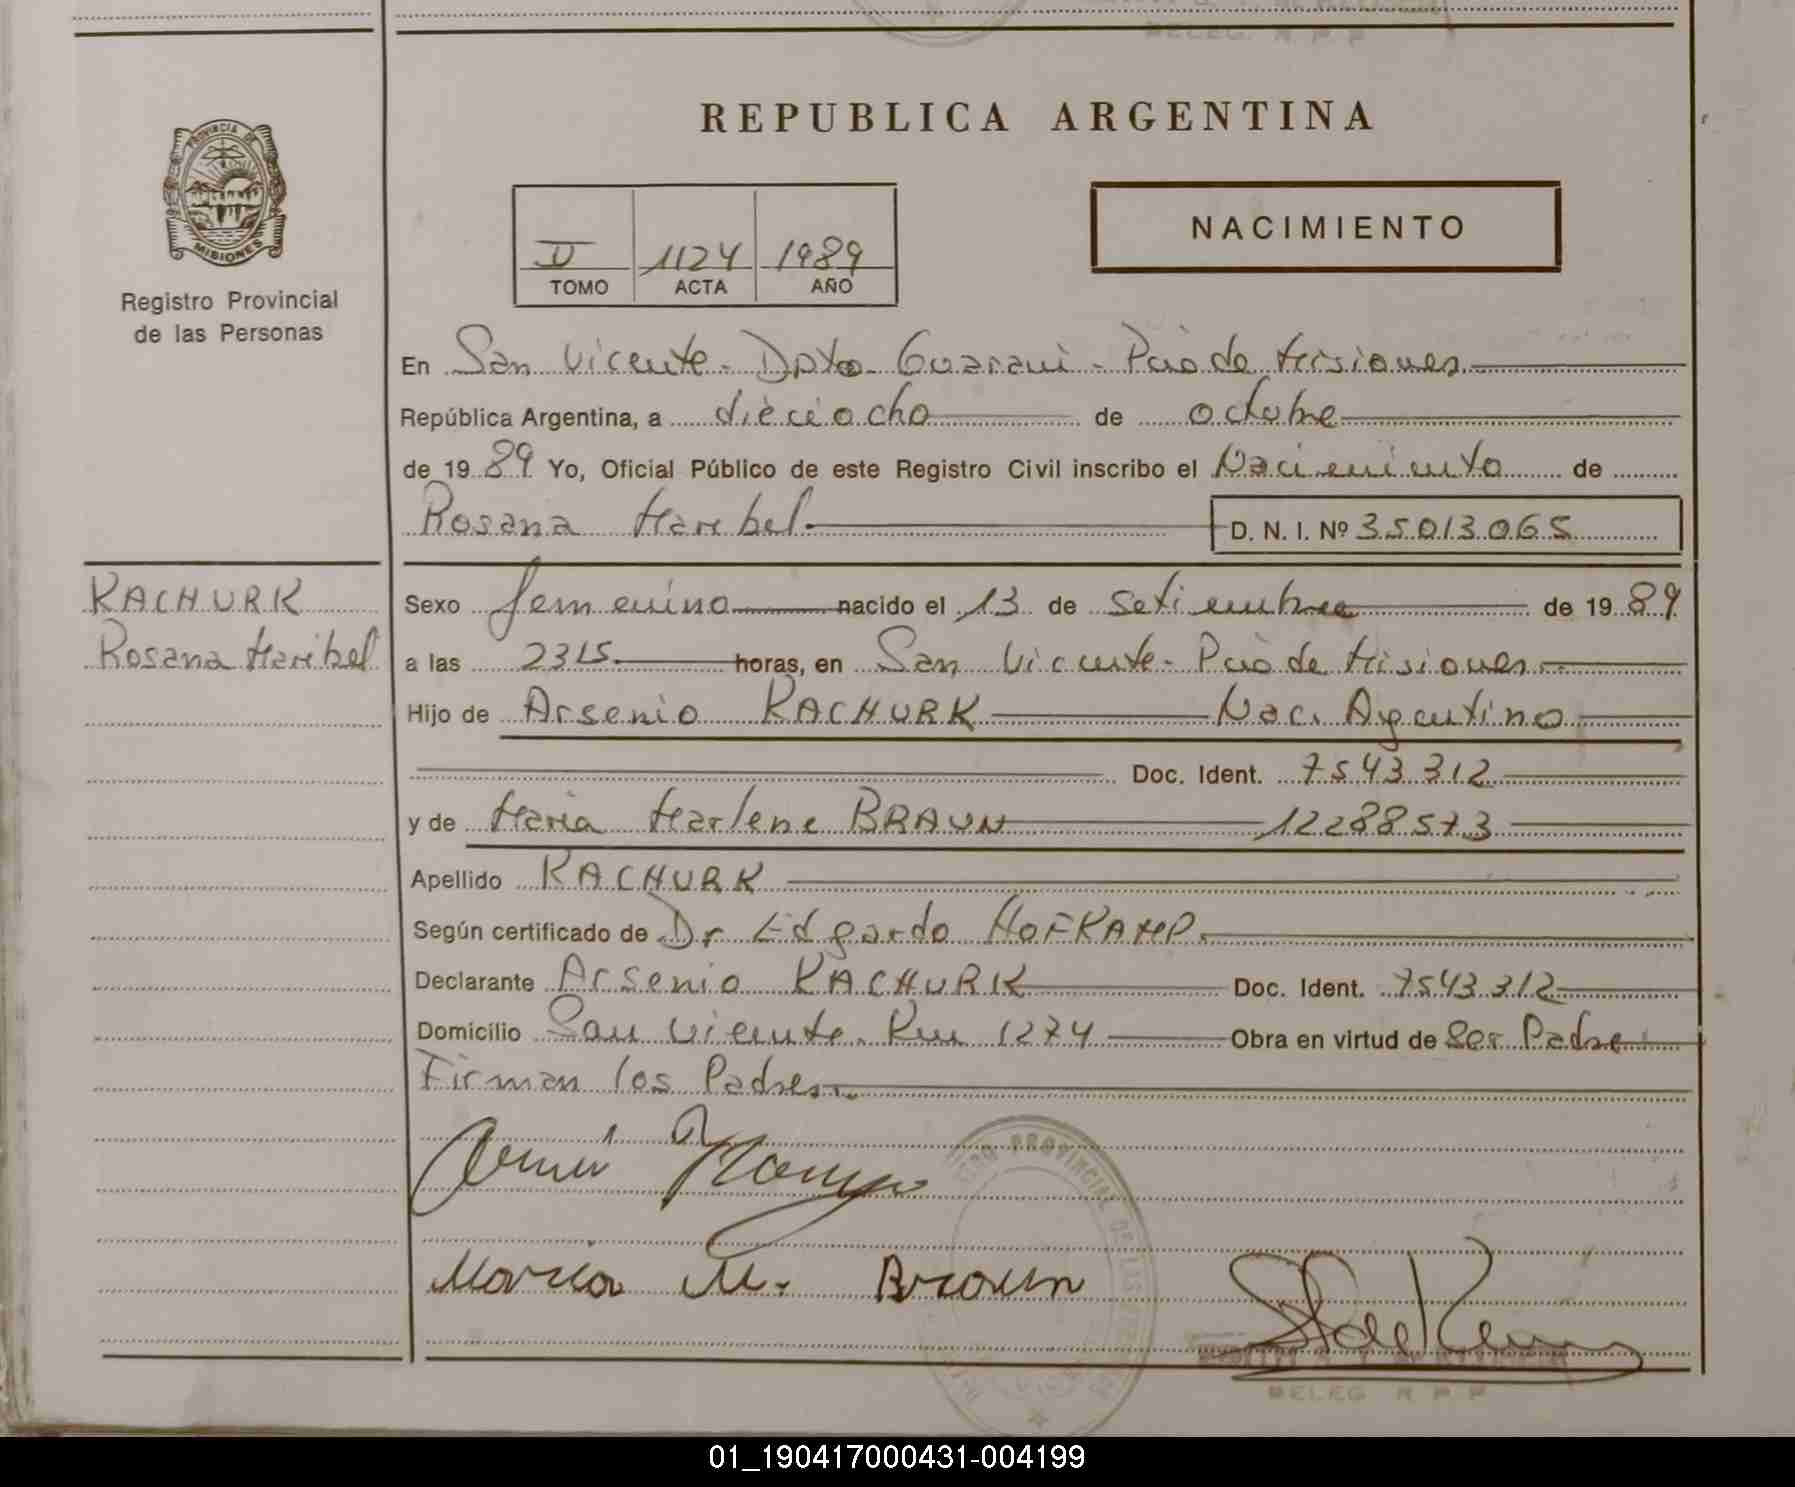 REPUBLICA ARGENTINA
PROVINCIA DE
MISIONES
Registro Provincial
de las Personas
NACIMIENTO
II 1124 1989
TOMO ACTA AÑO
En San Vicente - Dpto Guarani - Pcia de Misiones
República Argentina, a dieciocho de octubre
de 1989 Yo, Oficial Público de este Registro Civil inscribo el Nacimiento de
Rosana Maribel D. N. I. Nº 35013065
KACHURK
Rosana Maribel
Sexo femenino nacido el 13 de Setiembre de 1989
a las 2315 horas, en San Vicente - Pcia de Misiones
Hijo de Arsenio KACHURK Nac. Argentino
Doc. Ident. 7543312
y de Maria Marlene BRAUN 12288573
Apellido KACHURK
Según certificado de Dr Edgardo HOFKAMP.
Declarante Arsenio KACHURK Doc. Ident. 7543312
Domicilio San Vicente. Km 1274 Obra en virtud de Ser Padre
Firman los Padres.
PROVINCIAL DE LAS
Maria M. Braun
DELEG R P P
01_190417000431-004199